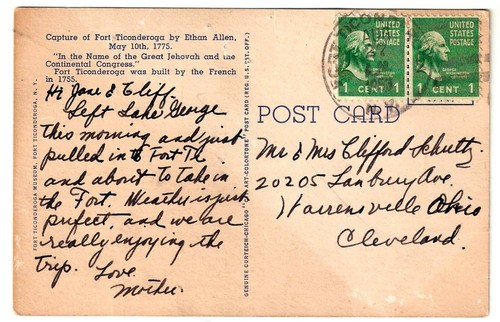 Capture of Fort Ticonderoga by Ethan Allen,
May 10th, 1775.
"In the Name of the Great Jehovah and the
Continental Congress."
Fort Ticonderoga was built by the French
in 1755.
Hi Jane & Cliff.
Left Lake George
this morning and just
pulled in to Fort Ti
and about to take in
the Fort. Weather is just
perfect, and we are
really enjoying the
trip. Love
Mother.
FORT TICONDEROGA MUSEUM, FORT TICONDEROGA, N. Y.
GENUINE CURTEICH-CHICAGO "C.T. ART-COLORTONE" POST CARD (REG. U.S. PAT. OFF.)
POST CARD
UNITED
STATES
POSTAGE
1 CENT 1
UNITED
STATES
POSTAGE
1 CENT 1
Mr & Mrs Clifford Schultz
20205 Lanbury Ave.
Warrensville Ohio
Cleveland.